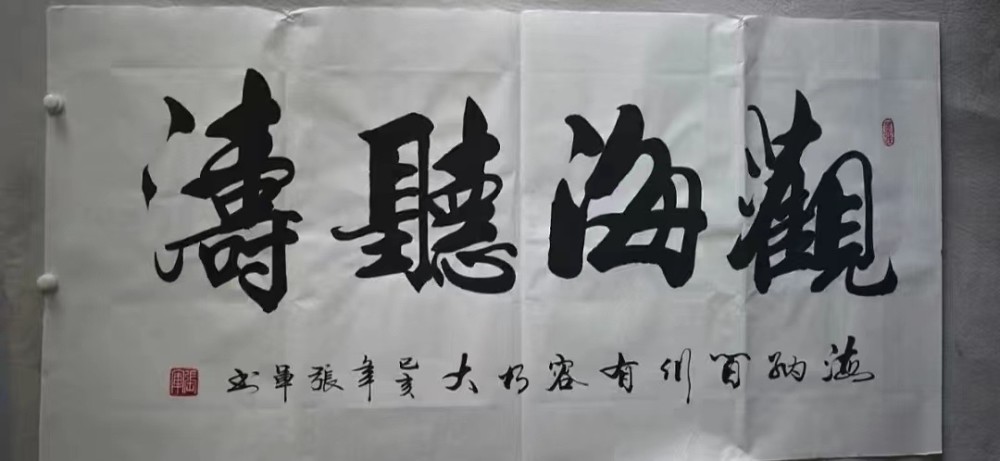 觀海聽濤
海納百川有容乃大 己亥年 張軍書
張軍